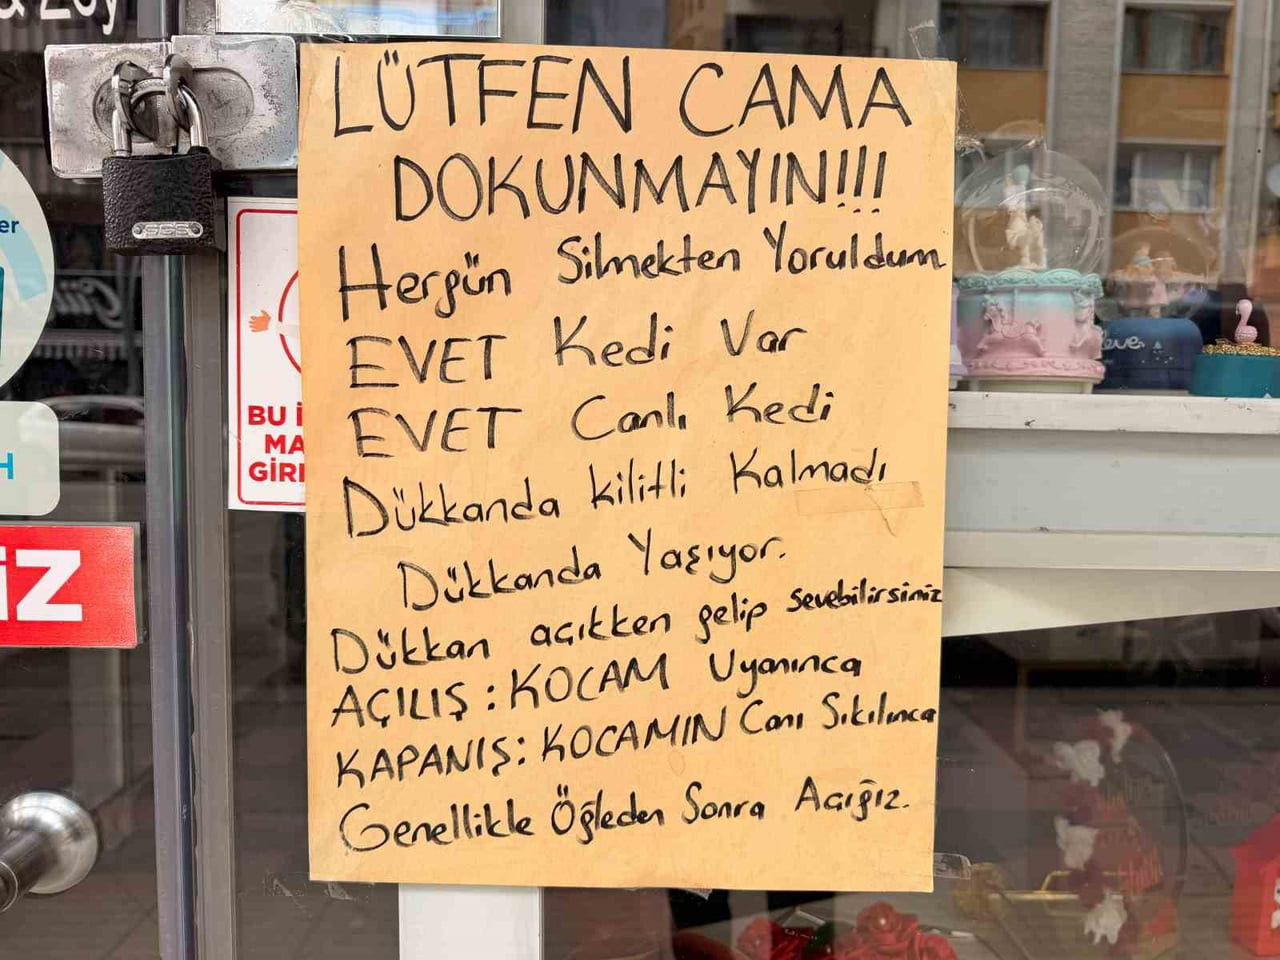 & Zoy
LÜTFEN CAMA
DOKUNMAYIN!!!
Hergün Silmekten Yoruldum
EVET Kedi Var
EVET Canlı Kedi
Dükkanda kilitli Kalmadı
Dükkanda Yaşıyor.
Dükkan açıkken gelip sevebilirsiniz
AÇILIŞ: KOCAM Uyanınca
KAPANIŞ: KOCAMIN Canı Sıkılınca
Genellikle Öğleden Sonra Açığız.
BU İ
MA
GİRİ
er
H
İZ
Love